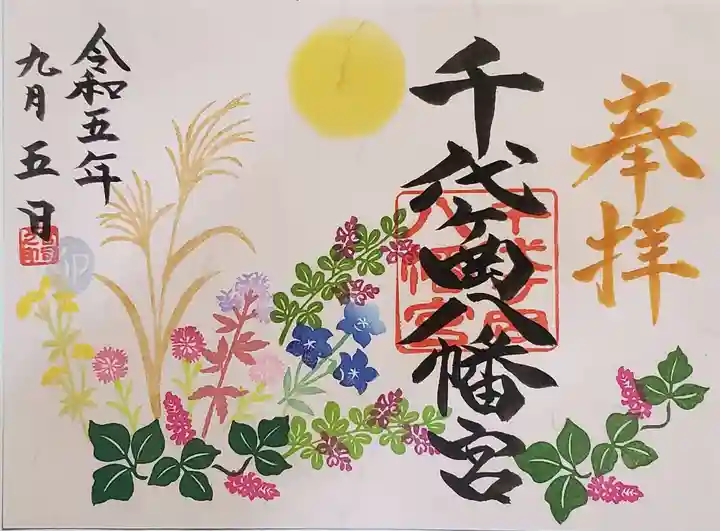 奉拝
千代ヶ岡八幡宮
令和五年
九月五日
卯